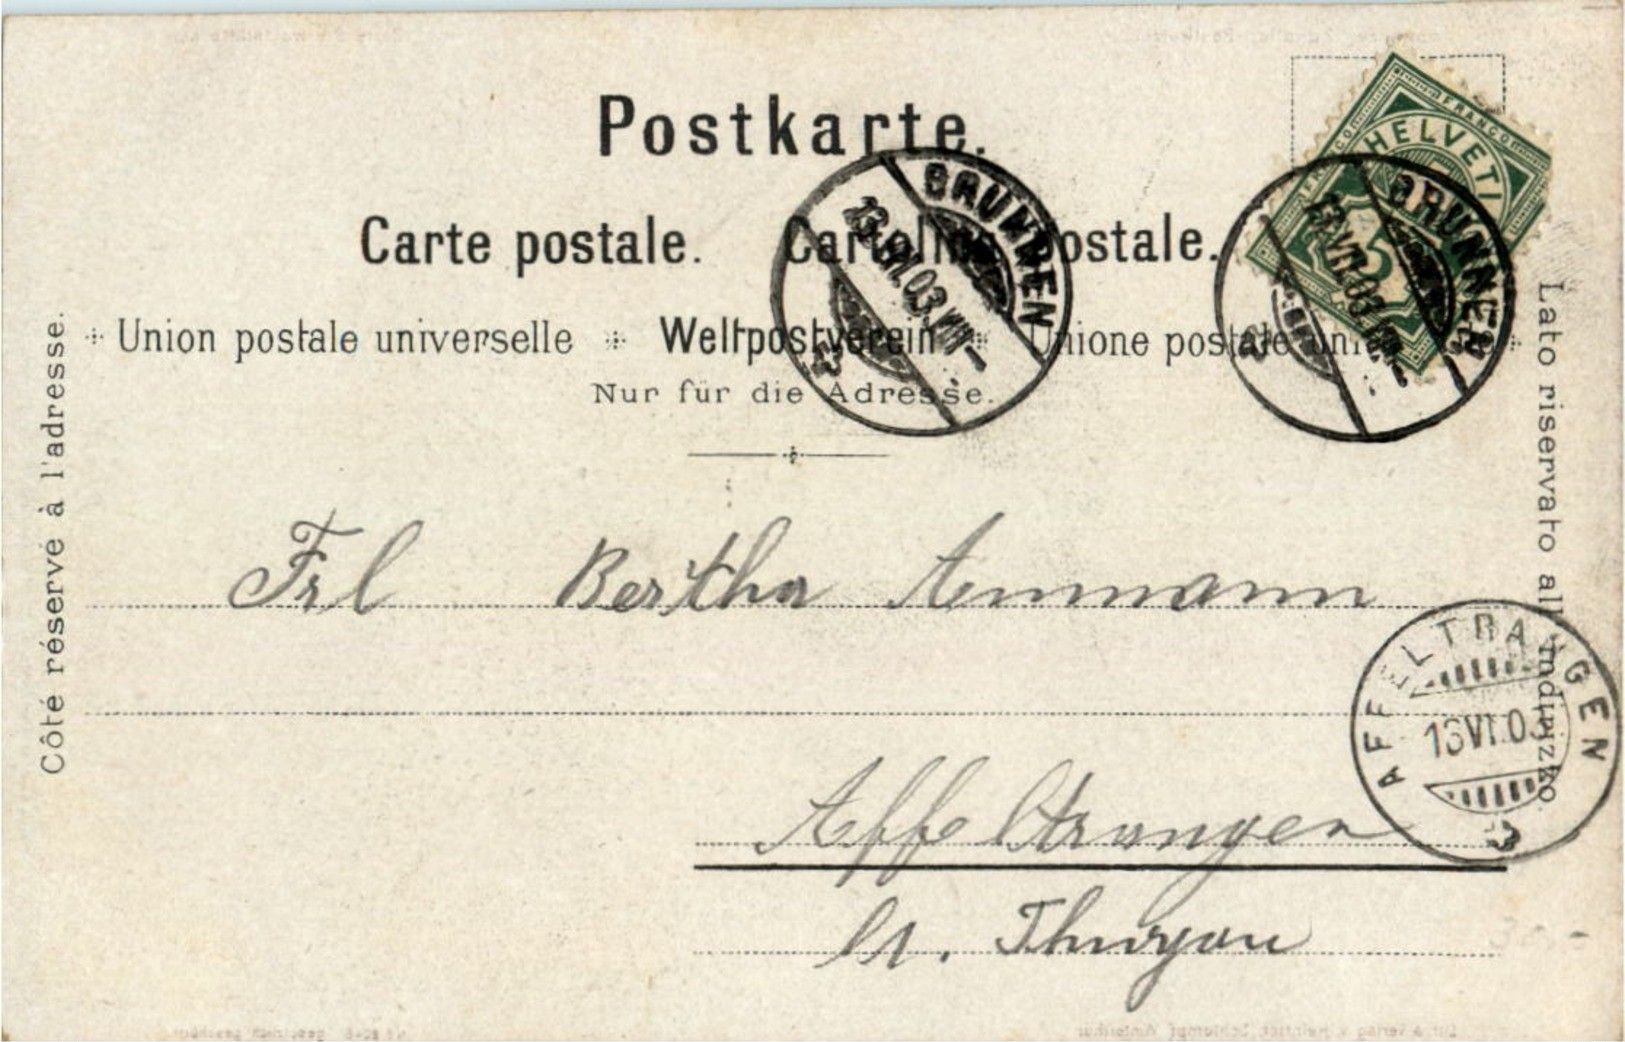 Postkarte.
Carte postale. Cartolina postale.
Union postale universelle Weltpostverein Unione postale
Nur für die Adresse.
Côté réservé à l'adresse.
Lato riservato all' indirizzo.
FRANCO
HELVETI
5
BRUNNEN
13.VI.03.VIII-
BRUNNEN
13.VI.03.VIII-
Frl Bertha Ammann
AFFELTRANGEN
13 VI. 03
Affeltrangen
Ct. Thurgau